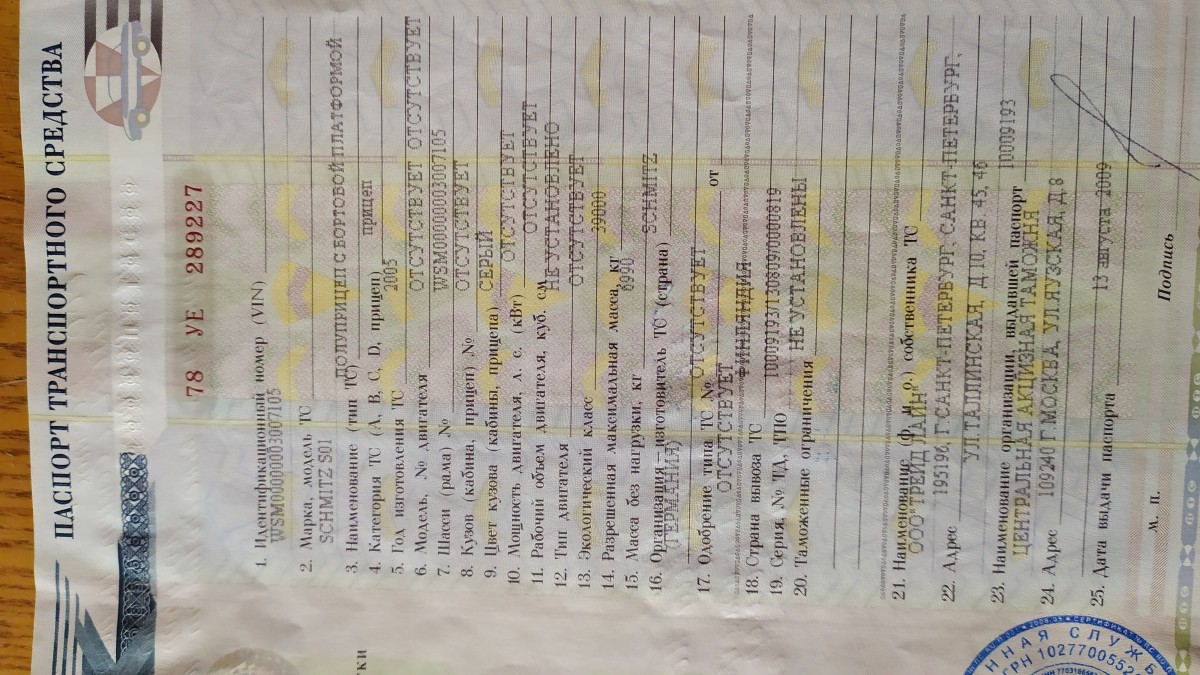 ПАСПОРТ ТРАНСПОРТНОГО СРЕДСТВА
78 УЕ 289227
1. Идентификационный номер (VIN)
WSM00000003007105
2. Марка, модель ТС
SCHMITZ S01
3. Наименование (тип ТС) ПОЛУПРИЦЕП С БОРТОВОЙ ПЛАТФОРМОЙ
4. Категория ТС (A, B, C, D, прицеп) прицеп
5. Год изготовления ТС 2005
6. Модель, № двигателя ОТСУТСТВУЕТ ОТСУТСТВУЕТ
7. Шасси (рама) № WSM00000003007105
8. Кузов (кабина, прицеп) № ОТСУТСТВУЕТ
9. Цвет кузова (кабины, прицепа) СЕРЫЙ
10. Мощность двигателя, л. с. (кВт) ОТСУТСТВУЕТ
11. Рабочий объем двигателя, куб. см ОТСУТСТВУЕТ
12. Тип двигателя НЕ УСТАНОВЛЕНО
13. Экологический класс ОТСУТСТВУЕТ
14. Разрешенная максимальная масса, кг 39000
15. Масса без нагрузки, кг 6990
16. Организация-изготовитель ТС (страна) SCHMITZ
(ГЕРМАНИЯ)
17. Одобрение типа ТС № ОТСУТСТВУЕТ от
ОТСУТСТВУЕТ
18. Страна вывоза ТС ФИНЛЯНДИЯ
19. Серия, № ТД, ТПО 10009193/130809/0000819
20. Таможенные ограничения НЕ УСТАНОВЛЕНЫ
21. Наименование (ф. и. о.) собственника ТС
ООО "ТРЕЙД ЛАЙН"
22. Адрес 195196, Г.САНКТ-ПЕТЕРБУРГ, САНКТ-ПЕТЕРБУРГ,
УЛ.ТАЛЛИНСКАЯ, Д.10, КВ. 45, 46
23. Наименование организации, выдавшей паспорт 10009193
ЦЕНТРАЛЬНАЯ АКЦИЗНАЯ ТАМОЖНЯ
24. Адрес 109240 Г.МОСКВА, УЛ.ЯУЗСКАЯ, Д.8
25. Дата выдачи паспорта 13 августа 2009
М. П. Подпись
ННАЯ СЛУЖБ
ГРН 1027700552